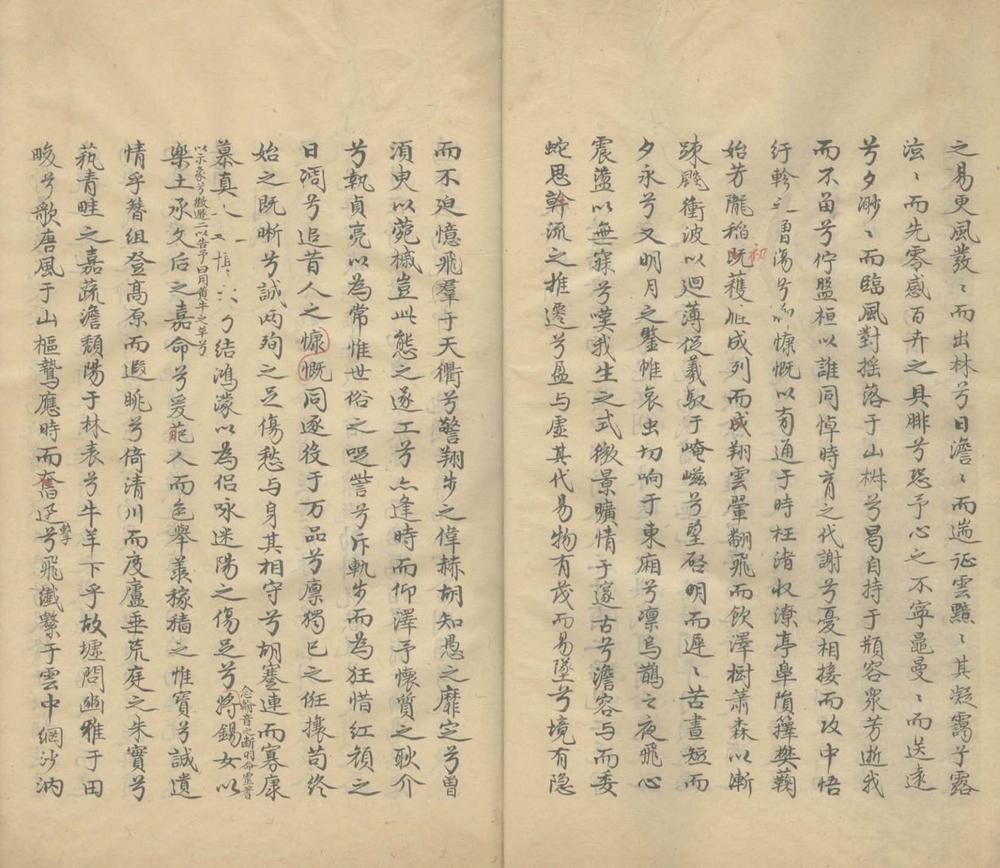 之易更風發〻而出林兮日澹〻而遄征雲黯〻其凝靄兮露
泫〻而先零感百卉之具腓兮恐予心之不寧黽曼〻而送遠
兮夕渺〻而臨風對搖落于山樹兮曷自持于頩容衆芳逝我
而不留兮佇盤桓以誰同悼時育之代謝兮憂相接而攻中悟
行軫之曹傷兮慷慨以有通于時枉渚收潦亭皋隕籜樊鞠
始芳隴稻既初穫成列而成翔雲翬翻飛而飲澤樹蕭森以漸
疎飈衝波以迴薄促羲馭于崦嵫兮望啓明而遲〻苦晝短而
夕永兮又明月之鑒帷哀虫切响于東廂兮凜烏鵲之夜飛心
震盪以無寐兮嘆我生之式微景曠情于邃古兮澹容与而委
蛇思斡流之推遷兮盈与虛其代易物有茂而易墜兮境有隐
而不迫憶飛羣于天衢兮警翔步之偉赫胡知愚之靡定兮曾
須臾以菀槭豈此態之逐工兮亦逢時而仰澤予懷質之耿介
兮執貞亮以為常惟世俗之咫訾兮斥軌步而為狂惜紅顏之
日凋兮追昔人之慷慨同逐役于万品兮廪獨已之俇攘苟終
始之既晰兮誠兩殉之足傷愁与身其相守兮胡蹇連而寡康
慕真結鴻濛以為侣咏迷陽之傷足兮將錫女以
念前音之漸明命靈蓍
以示象兮微遯二以告予曰用黄牛之革兮
樂土承文后之嘉命兮爰葩人而色舉羨稼穡之惟寶兮誠遺
情乎簪組登髙原而遐眺兮倚清川而度廬垂荒庭之朱實兮
蓺青畦之嘉蔬澹頹陽于林表兮牛羊下乎故墟問豳雅于田
畯兮歌唐風于山樞鷙應時而奮擊兮飛纖繁于雲中網沙汭